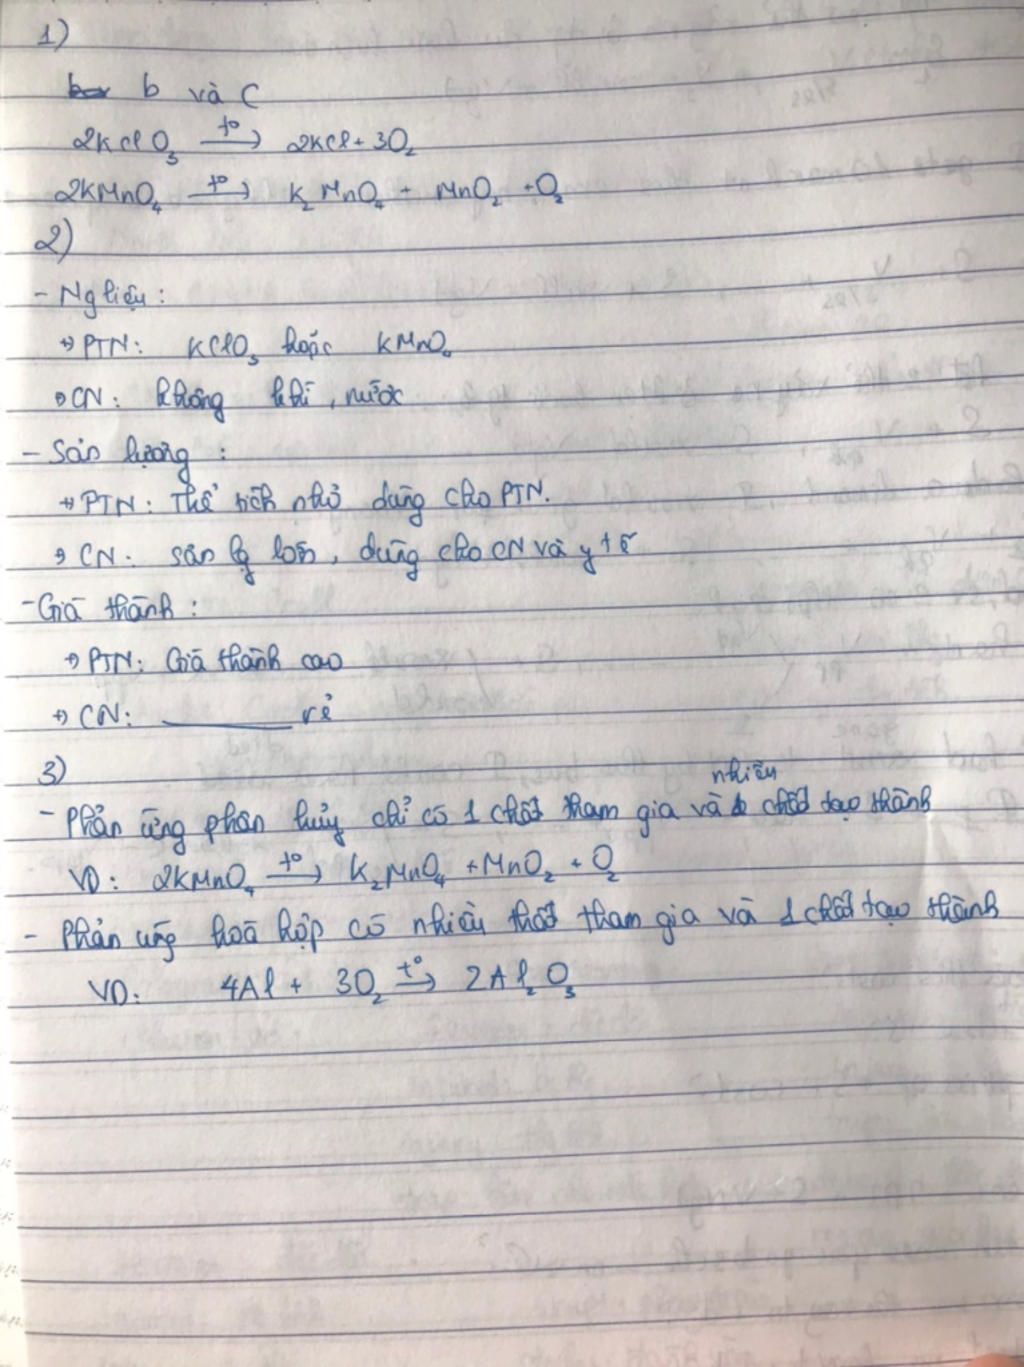 1)
b và C
2KClO₃ —t°→ 2KCl + 3O₂
2KMnO₄ —t°→ K₂MnO₄ + MnO₂ + O₂
2)
- Ng liệu :
→ PTN: KClO₃ hoặc KMnO₄
→ CN: không khí, nước
- Sản lượng :
→ PTN: Thể tích nhỏ dùng cho PTN.
→ CN: sản lg lớn, dùng cho CN và y tế
- Giá thành :
→ PTN: Giá thành cao
→ CN: ______ rẻ
3)
- Phản ứng phân hủy chỉ có 1 chất tham gia và nhiều chất tạo thành
VD: 2KMnO₄ —t°→ K₂MnO₄ + MnO₂ + O₂
- Phản ứng hoá hợp có nhiều thất tham gia và 1 chất tạo thành
VD: 4Al + 3O₂ —t°→ 2Al₂O₃